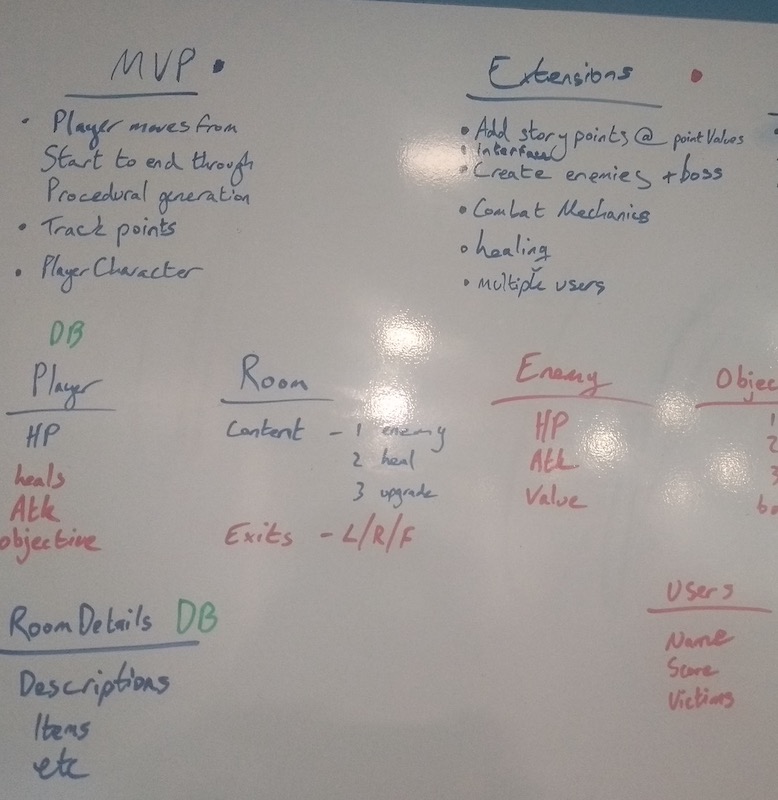 MVP •
• Player moves from
Start to end through
Procedural generation
• Track points
• Player Character
Extensions •
• Add story points @ point values
• interface
• Create enemies + boss
• Combat Mechanics
• healing
• multiple users
DB
Player
HP
heals
Atk
objective
Room
Content - 1 enemy
2 heal
3 upgrade
Exits - L/R/F
Enemy
HP
Atk
Value
Objec
1
2
3
bo
RoomDetails DB
Descriptions
Items
etc
Users
Name
Score
Victims